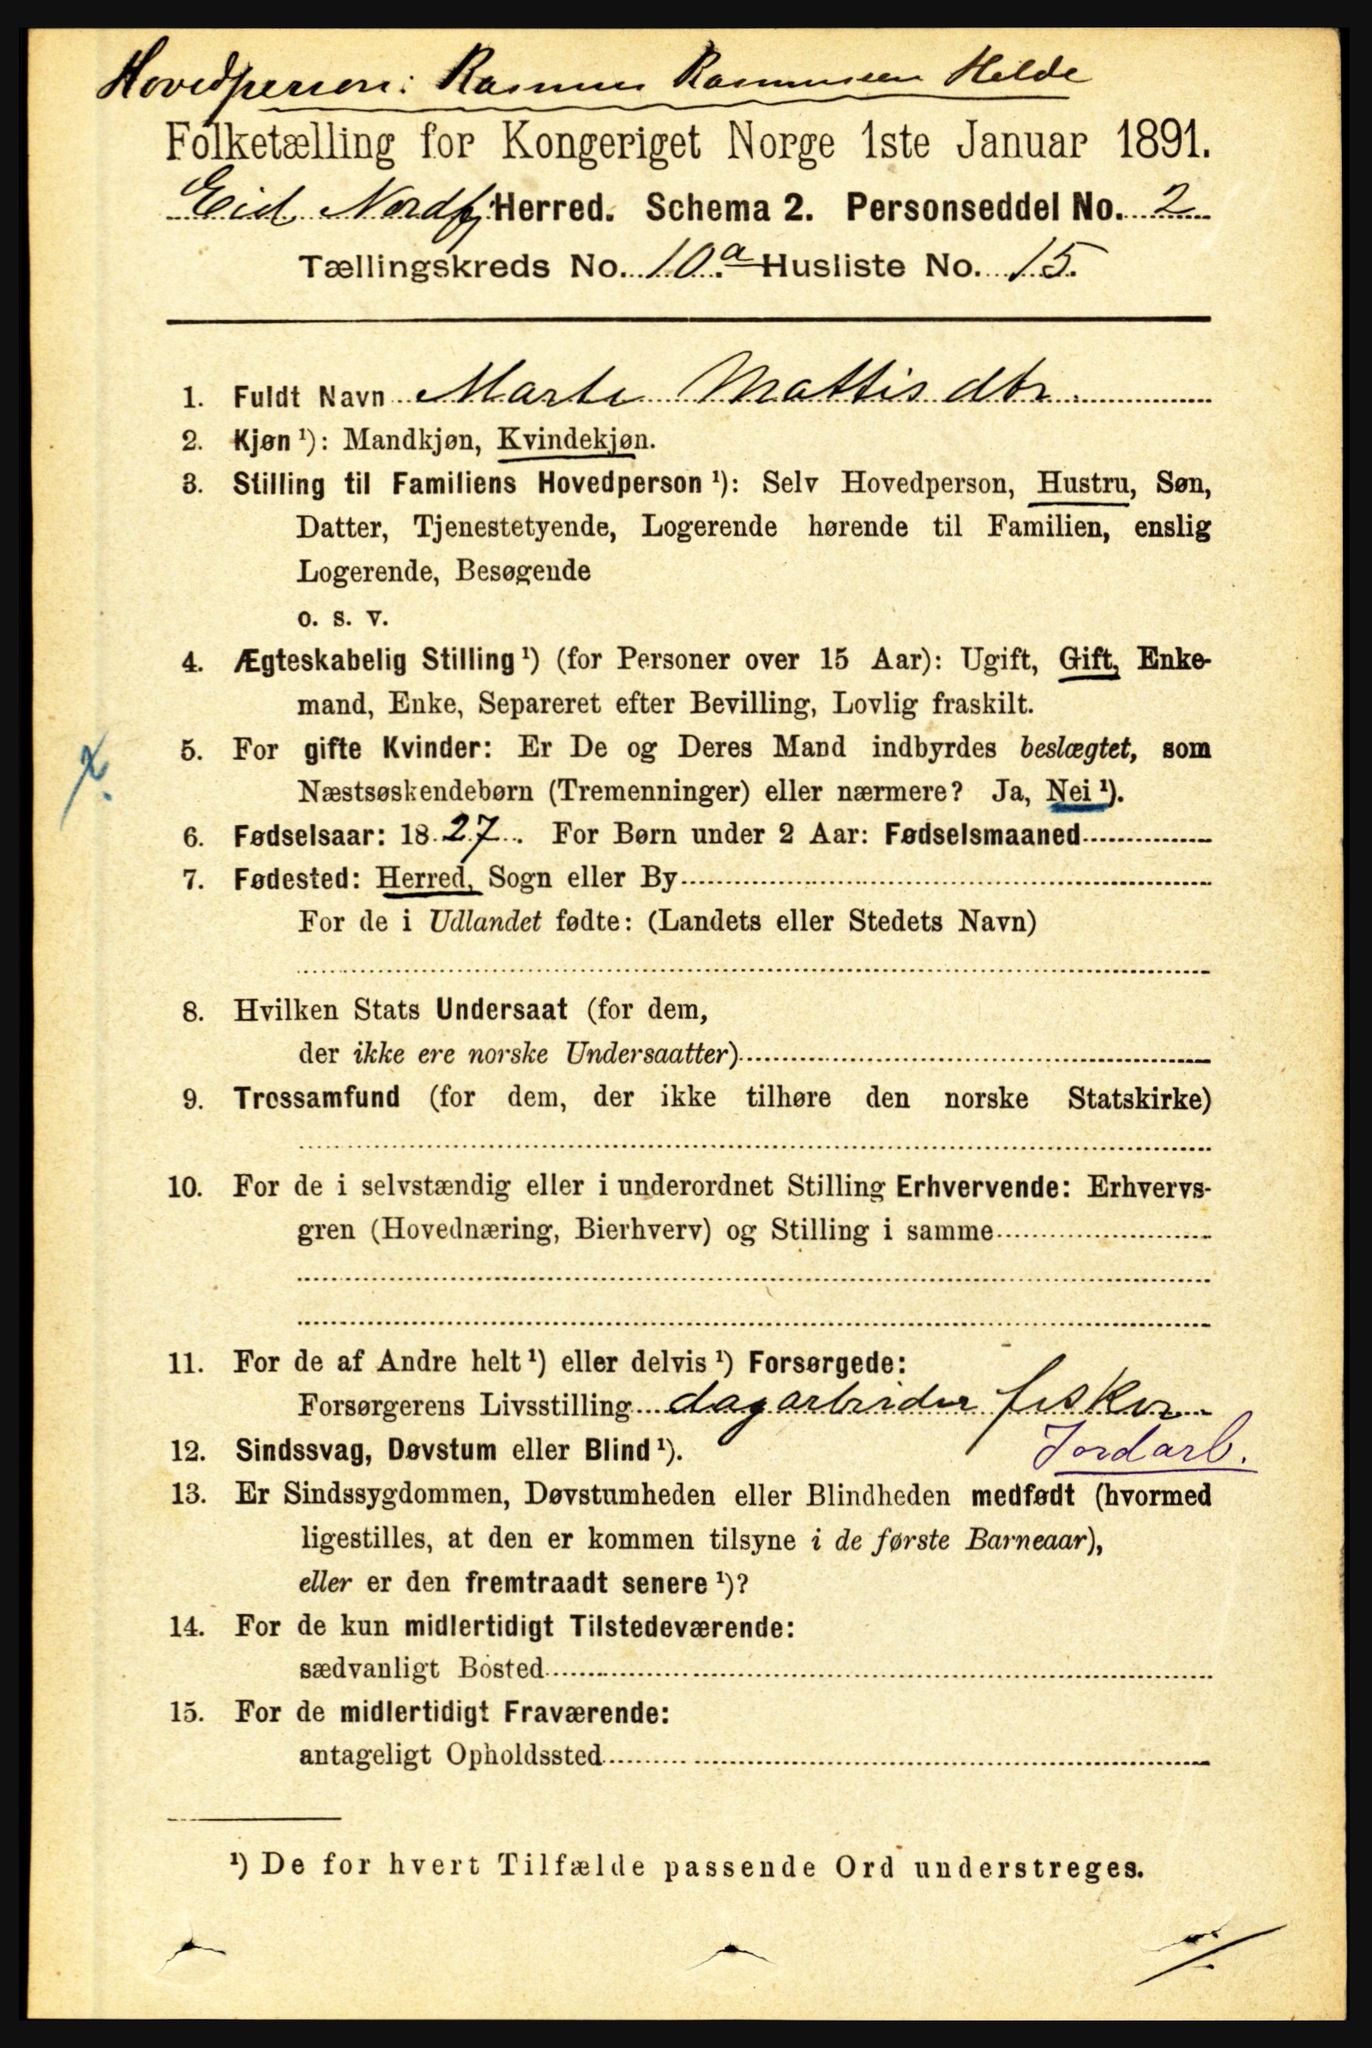 Hovedperson: Rasmus Rasmussen Helde
Folketælling for Kongeriget Norge 1ste Januar 1891.
Eid, Nordfj. Herred. Schema 2. Personseddel No. 2
Tællingskreds No. 10.a Husliste No. 15.
1. Fuldt Navn Marte Mattisdtr.
2. Kjøn ¹): Mandkjøn, Kvindekjøn.
3. Stilling til Familiens Hovedperson ¹): Selv Hovedperson, Hustru, Søn,
Datter, Tjenestetyende, Logerende hørende til Familien, enslig
Logerende, Besøgende
o. s. v.
4. Ægteskabelig Stilling ¹) (for Personer over 15 Aar): Ugift, Gift, Enke-
mand, Enke, Separeret efter Bevilling, Lovlig fraskilt.
5. For gifte Kvinder: Er De og Deres Mand indbyrdes beslægtet, som
Næstsøskendebørn (Tremenninger) eller nærmere? Ja, Nei ¹).
6. Fødselsaar: 1827. For Børn under 2 Aar: Fødselsmaaned
7. Fødested: Herred, Sogn eller By
For de i Udlandet fødte: (Landets eller Stedets Navn)
8. Hvilken Stats Undersaat (for dem,
der ikke ere norske Undersaatter)
9. Trossamfund (for dem, der ikke tilhøre den norske Statskirke)
10. For de i selvstændig eller i underordnet Stilling Erhvervende: Erhvervs-
gren (Hovednæring, Bierhverv) og Stilling i samme
11. For de af Andre helt ¹) eller delvis ¹) Forsørgede:
Forsørgerens Livsstilling dagarbeider fisker
Jordarb.
12. Sindssvag, Døvstum eller Blind ¹).
13. Er Sindssygdommen, Døvstumheden eller Blindheden medfødt (hvormed
ligestilles, at den er kommen tilsyne i de første Barneaar),
eller er den fremtraadt senere ¹)?
14. For de kun midlertidigt Tilstedeværende:
sædvanligt Bosted
15. For de midlertidigt Fraværende:
antageligt Opholdssted
¹) De for hvert Tilfælde passende Ord understreges.